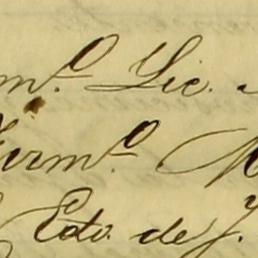 mº. Lic.
Firmº. M
Edo. de J.